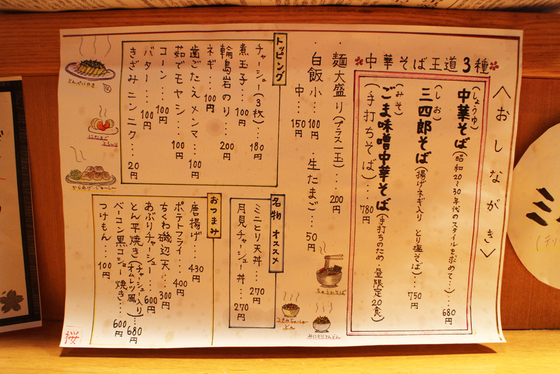 〈おしながき〉
中華そば王道3種
(しょうゆ)
中華そば(昭和20~30年代のスタイルを求めて…)…680
(しお)
三四郎そば(揚げネギ入り とり塩そば)…750
(みそ)
ごま味噌中華そば(手打ちのため一昼限定20食)
(手打ちそば)…780円
・麺大盛り(プラス一玉)…200円
・白飯 小…100円 ・生たまご…50円
中…150円
トッピング
チャーシュー(3枚)…180円
煮玉子…100円
輪島岩のり…200円
ネギ…100円
歯ごたえメンマ…100円
茹でモヤシ…100円
コーン…100円
バター…100円
きざみニンニク…20円
名物 オススメ
ミニとり天丼…270円
月見チャーシュー丼 270円
おつまみ
唐揚げ…430
ポテトフライ…400
ちくわ磯辺天…300
あぶりチャーシュー…600
とん平焼き(チャーシュー入りオムレツ風)…680円
ベーコン黒コショー焼き…600円
つけもん…100円
ミ